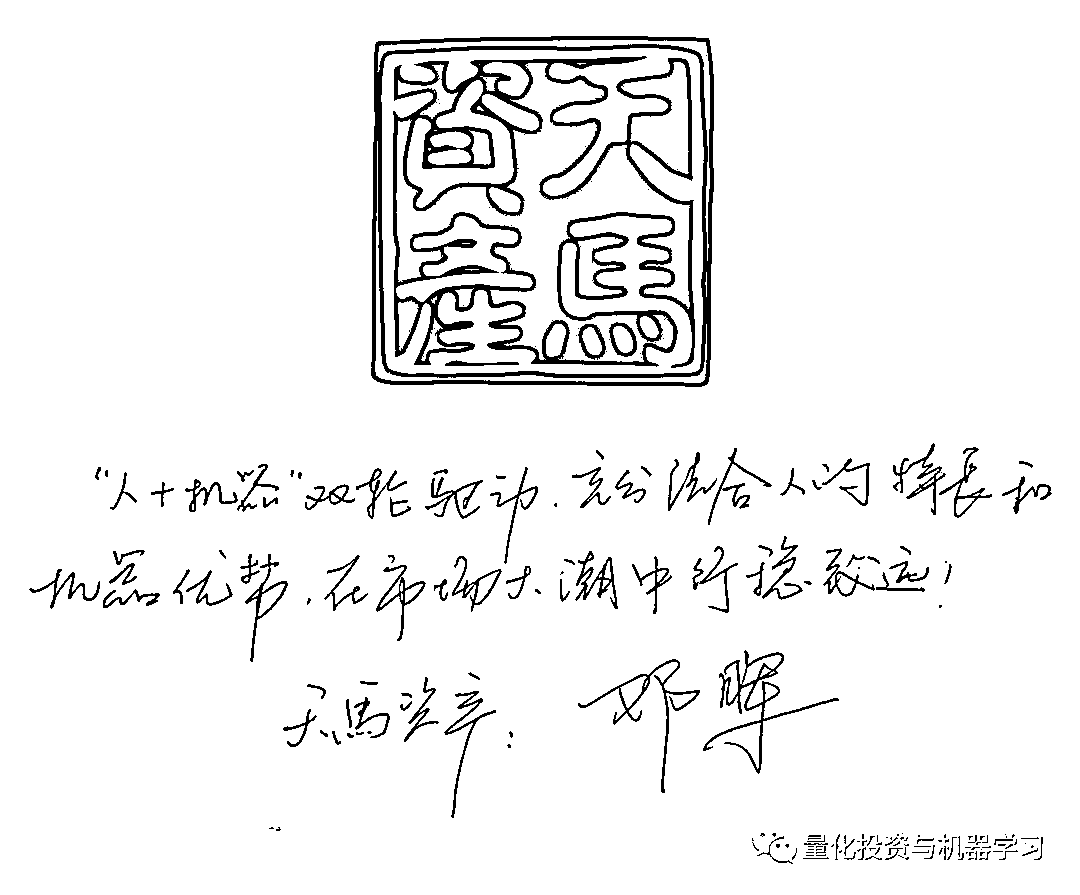 天馬
資產
“人+机器”双轮驱动，充分结合人的特長和
机器优势，在市场大潮中行稳致远！
天馬资产：邓晖
量化投资与机器学习